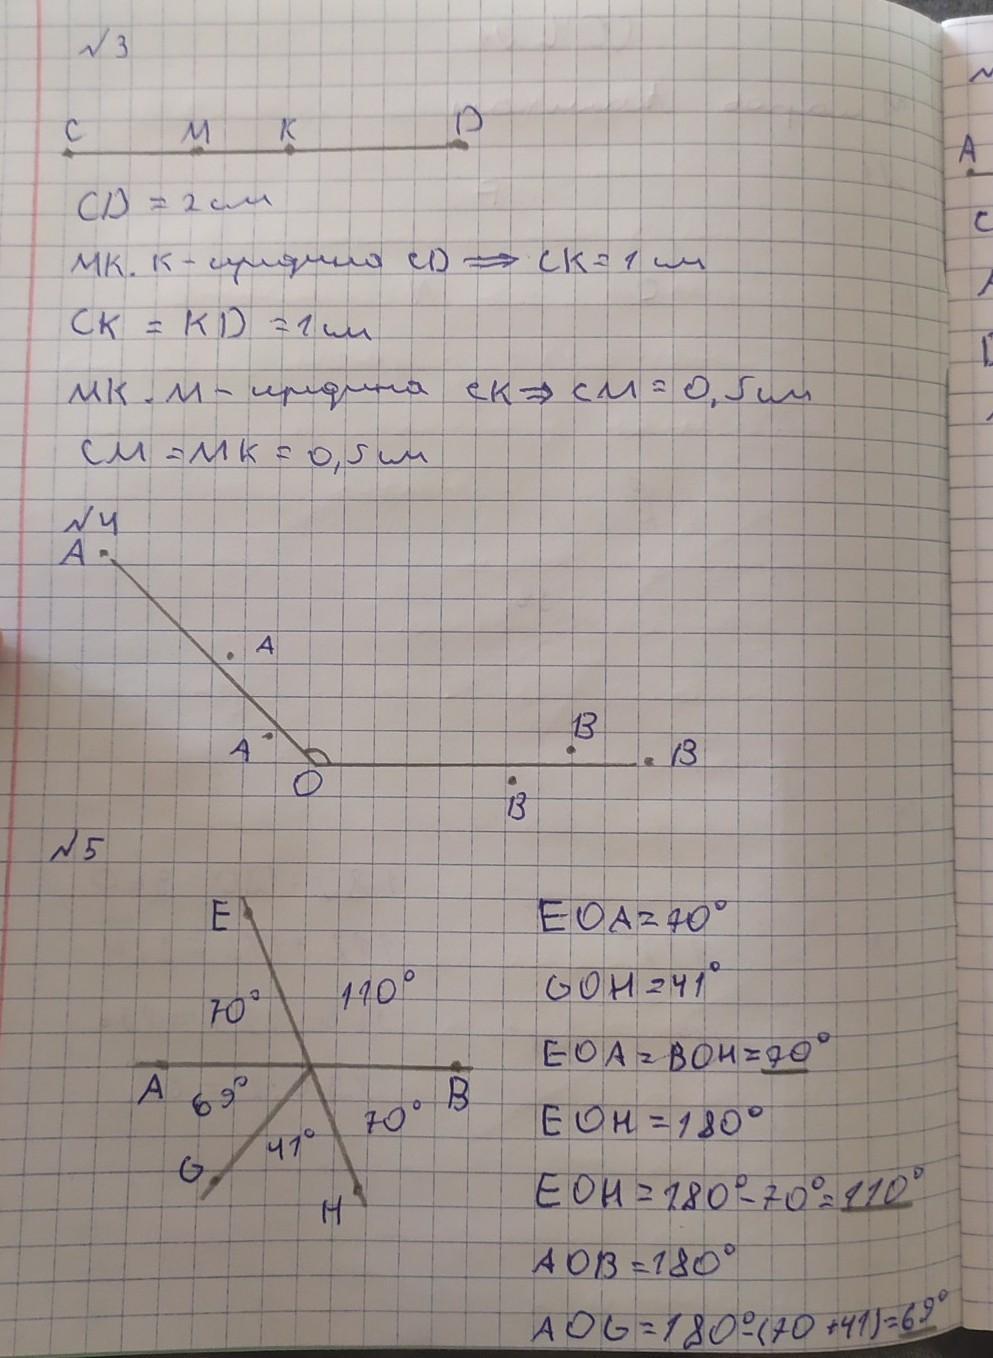 √3
C M K D
CD = 2 см
МК. К - середина CD => CK = 1 см
CK = KD = 1 см
МК. М - середина CK => CM = 0,5 см
CM = MK = 0,5 см
№4
A
A
A
O
B
B
B
№5
E
70° 110°
A 69° 41° 70° B
G
H
EOA = 70°
GOH = 41°
EOA = BOH = 70°
EOH = 180°
EOH = 180° - 70° = 110°
AOB = 180°
AOG = 180° - (70 + 41) = 69°
A
C